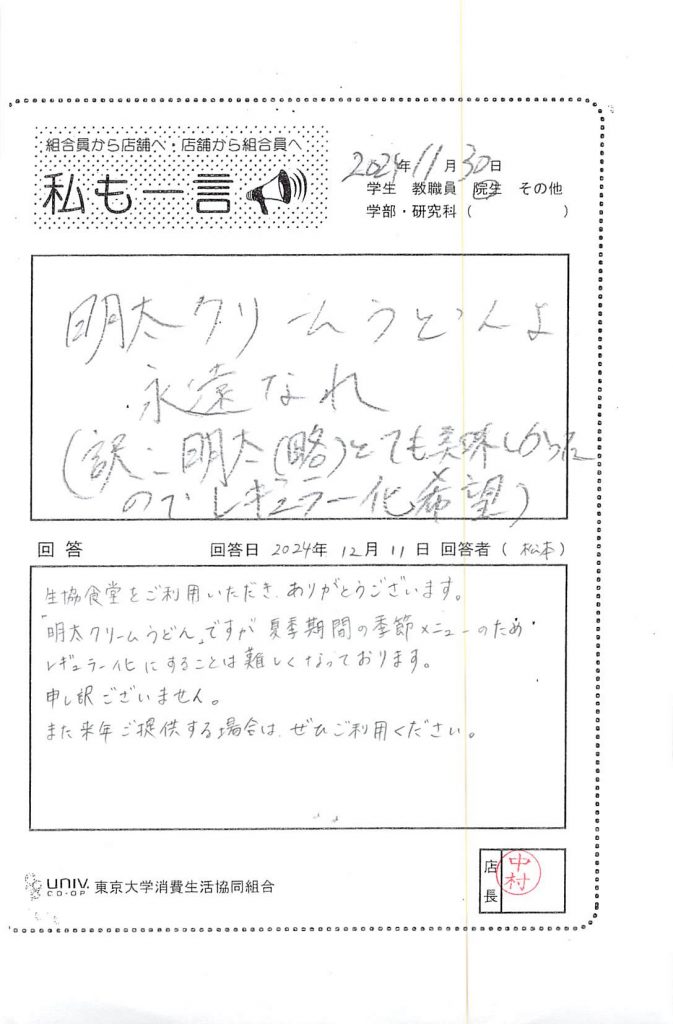 組合員から店舗へ・店舗から組合員へ
私も一言
2024年11月30日
学生 教職員 院生 その他
学部・研究科（ ）
明太クリームうどんよ
永遠なれ
(訳:明太(略)とても美味しかった
のでレギュラー化希望)
回答 回答日 2024年 12月 11日 回答者（ 松本 ）
生協食堂をご利用いただき、ありがとうございます。
「明太クリームうどん」ですが 夏季期間の季節メニューのため
レギュラー化にすることは難しくなっております。
申し訳ございません。
また来年ご提供する場合は、ぜひご利用ください。
UNIV. CO-OP 東京大学消費生活協同組合
店長
中村